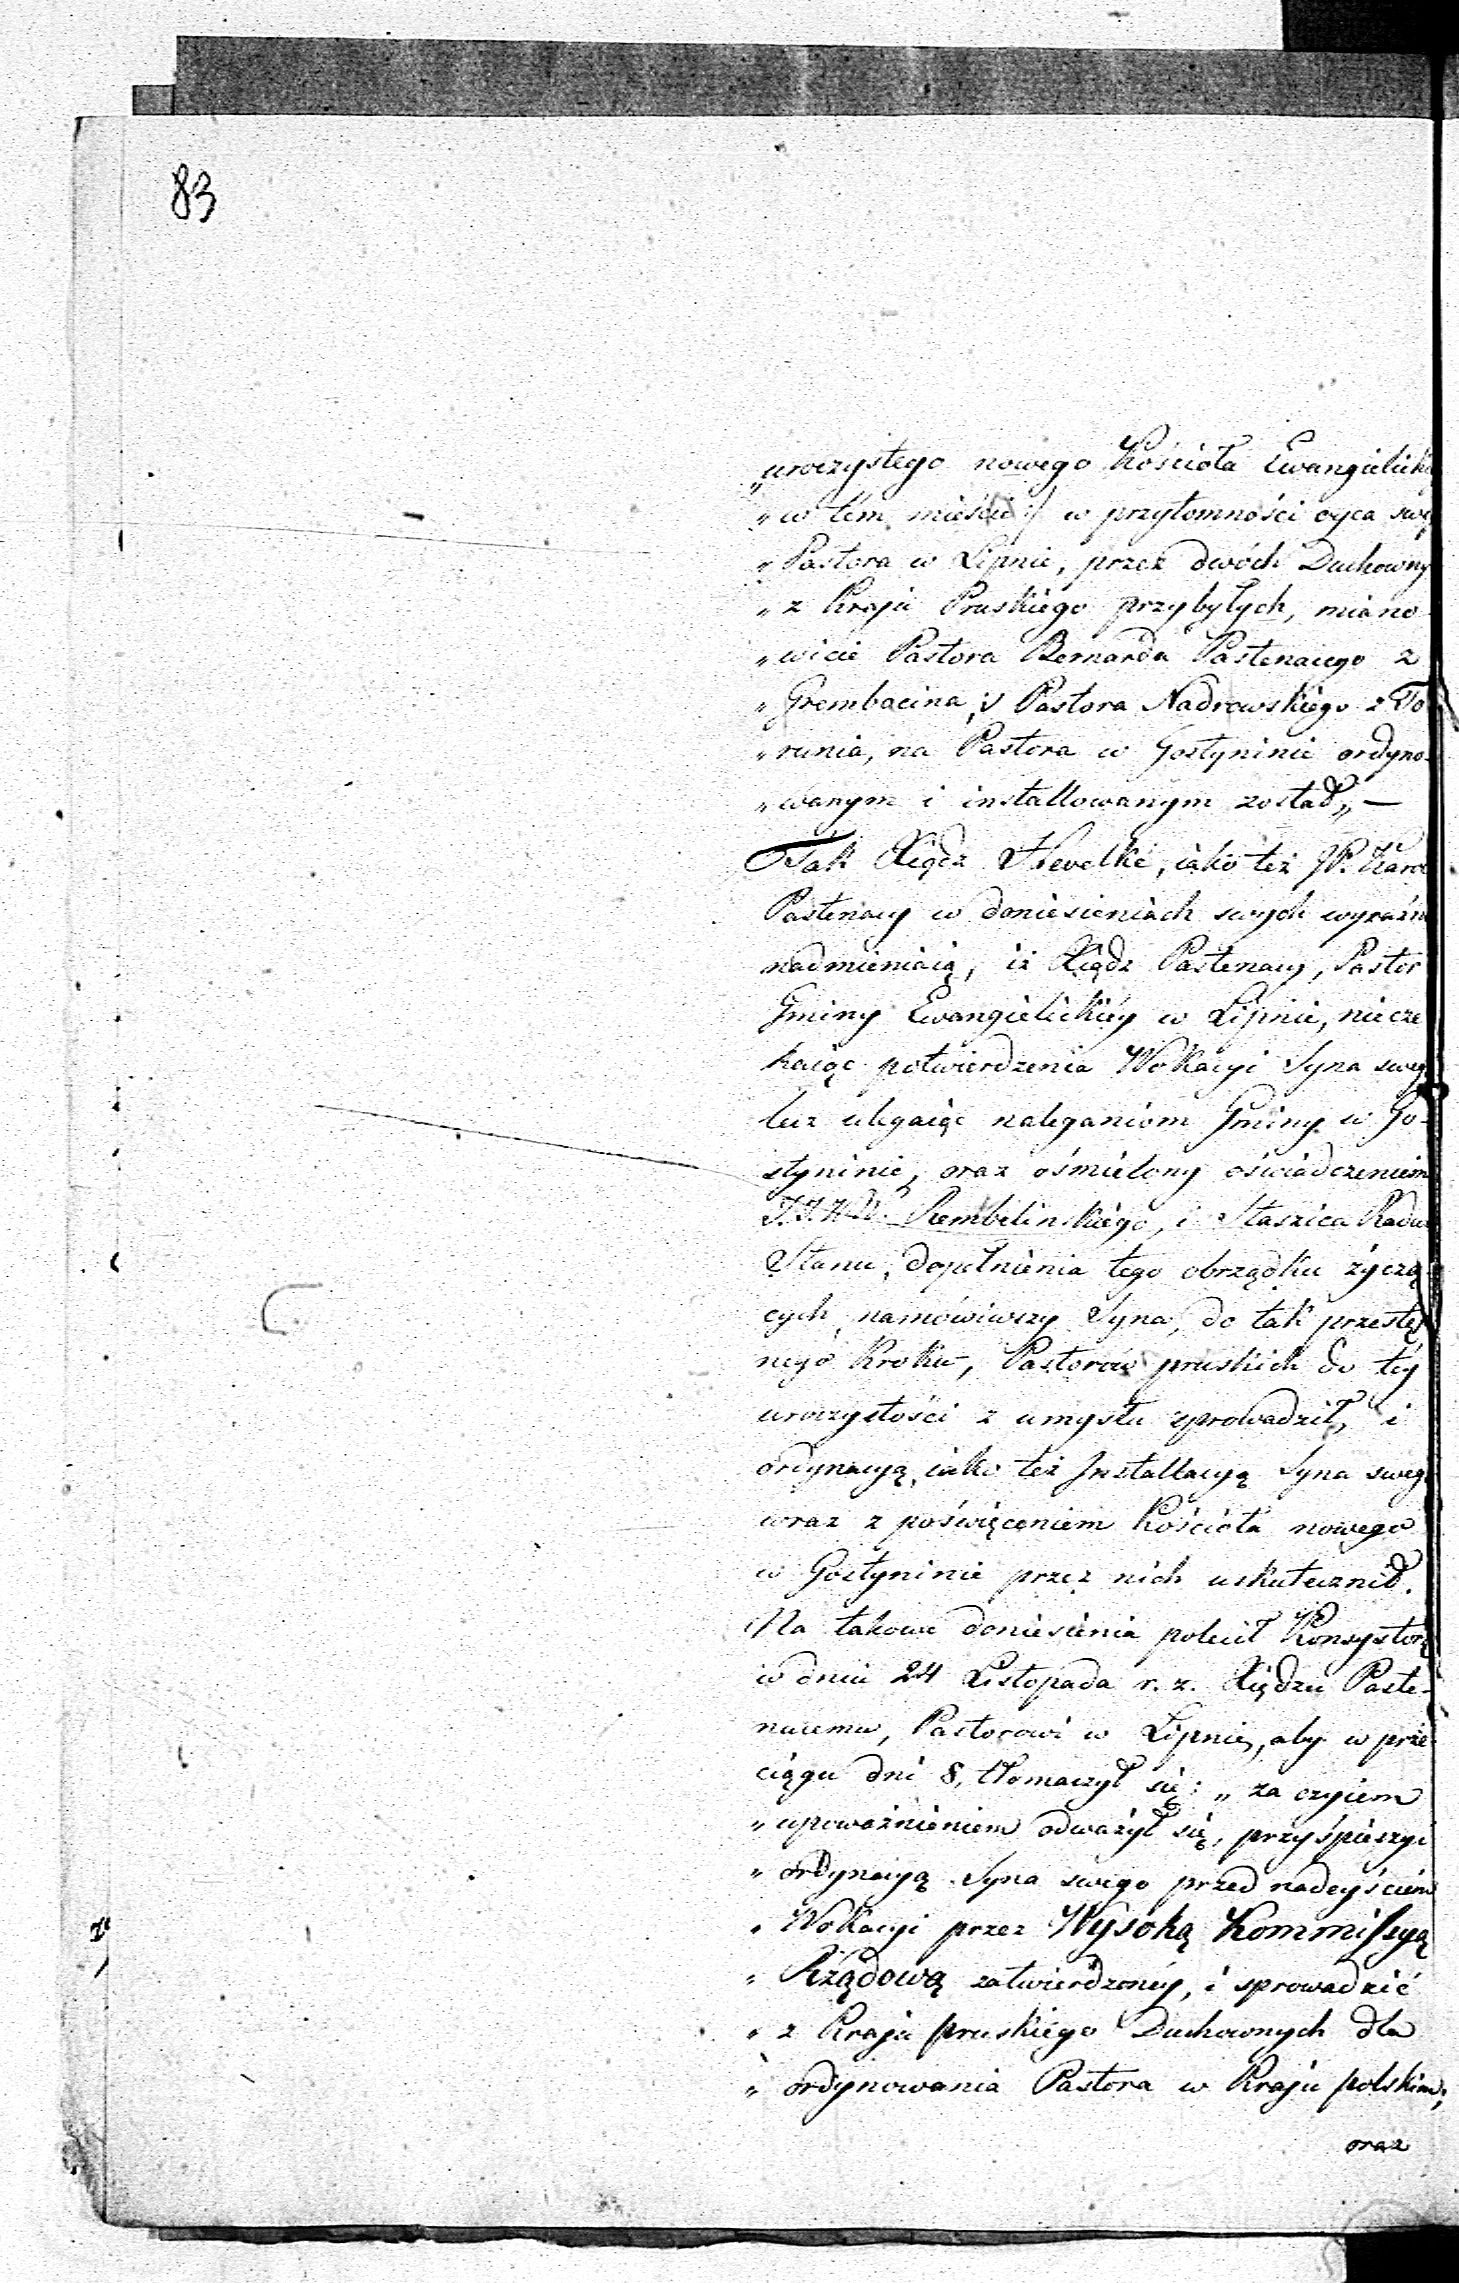 83
„uroczystego nowego Kościoła Ewangielick
„w tém mieście :/ w przytomności oyca swe
„Pastora w Lipnie, przez dwóch Duchowny
„z Kraju Pruskiego przybyłych, miano
„wicie Pastora Bernarda Pastenacego z
„Grembocina, i Pastora Nadrowskiego z To
„runia, na Pastora w Gostyninie ordyno-
„wanym i installowanym został„ —
Tak Xiądz , iako też JP. Karol
Pastenacy w doniesieniach swych wyraźn
nadmieniaią, iż Xiądz Pastenacy, Pastor
Gminy Ewangielickiéy w Lipnie, niecze
kaiąc potwierdzenia Wokacyi Syna sweg
lecz ulegaiąc naleganiom Gminy w Go-
styninie, oraz ośmielony oświadczeniem
J.J.W.W. Rembelinskiego, i Staszica Radc
Stanu, dopełnienia tego obrządku życzą
cych, namówiwszy Syna, do tak przestę
nego Kroku, Pastorów pruskich do téy
uroczystości z umysłu sprowadził, i
ordynacyą, iako też Installacyą Syna sweg
wraz z poświęceniem Kościoła nowego
w Gostyninie przez nich uskutecznił.
Na takowe doniesienia polecił Konsystorz
w dniu 24 Listopada r. z. Xiędzu Paste-
nacemu, Pastorowi w Lipnie, aby w prze
ciągu dni 8, tłomaczył się: „ za czyiem
„upoważnieniem odważył się, przyśpieszyć
„ordynacyą Syna swego przed nadeyściem
„Wokacyi przez Wysoką Kommissyą
„Rządową zatwierdzonéy, i sprowadzić
„z Kraju pruskiego Duchownych dla
„ordynowania Pastora w Kraju polskim;
oraz